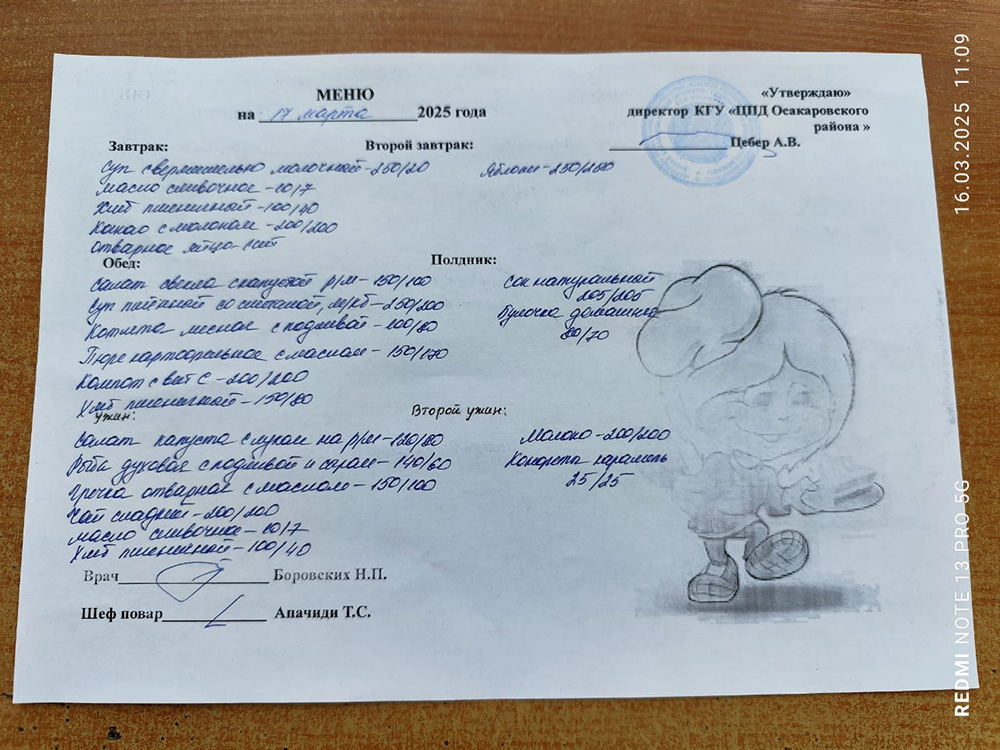 МЕНЮ
на 17 марта 2025 года
«Утверждаю»
директор КГУ «ЦПД Осакаровского
района »
Цебер А.В.
Завтрак:
Суп с вермишелью молочной-250/20
Масло сливочное-10/7
Хлеб пшеничный-100/40
Какао с молоком-200/200
Отварное яйцо-1шт
Второй завтрак:
Яблоки-250/260
Обед:
Салат свекла с капустой р/м-150/100
Суп пшённой со сметаной, м/кб-250/200
Котлета мясная с подливой-100/80
Пюре картофельное с маслом-150/170
Компот с вит С-200/200
Хлеб пшеничный-150/80
Полдник:
Сок натуральный
205/205
Булочка домашняя
80/70
Ужин:
Салат капуста с луком на р/м-120/80
Рыба духовая с подливой и сыром-140/60
Гречка отварная с маслом-150/100
Чай сладкий-200/200
Масло сливочное-10/7
Хлеб пшеничный-100/40
Второй ужин:
Молоко-200/200
Конфета карамель
25/25
Врач Боровских Н.П.
Шеф повар Апачиди Т.С.
REDMI NOTE 13 PRO 5G
16.03.2025 11:09